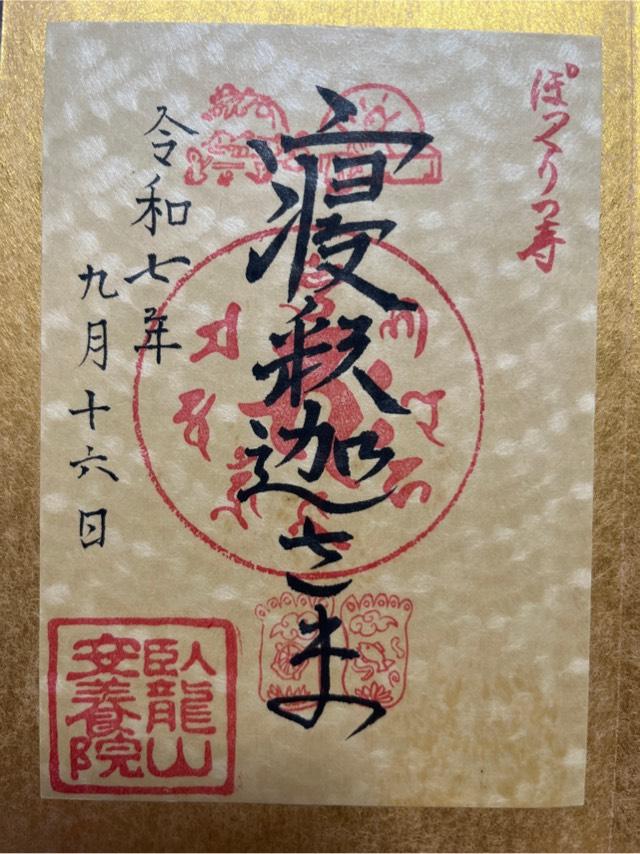 ぽっくりっ寺
寝釈迦さま
令和七年
九月十六日
臥龍山
安養院